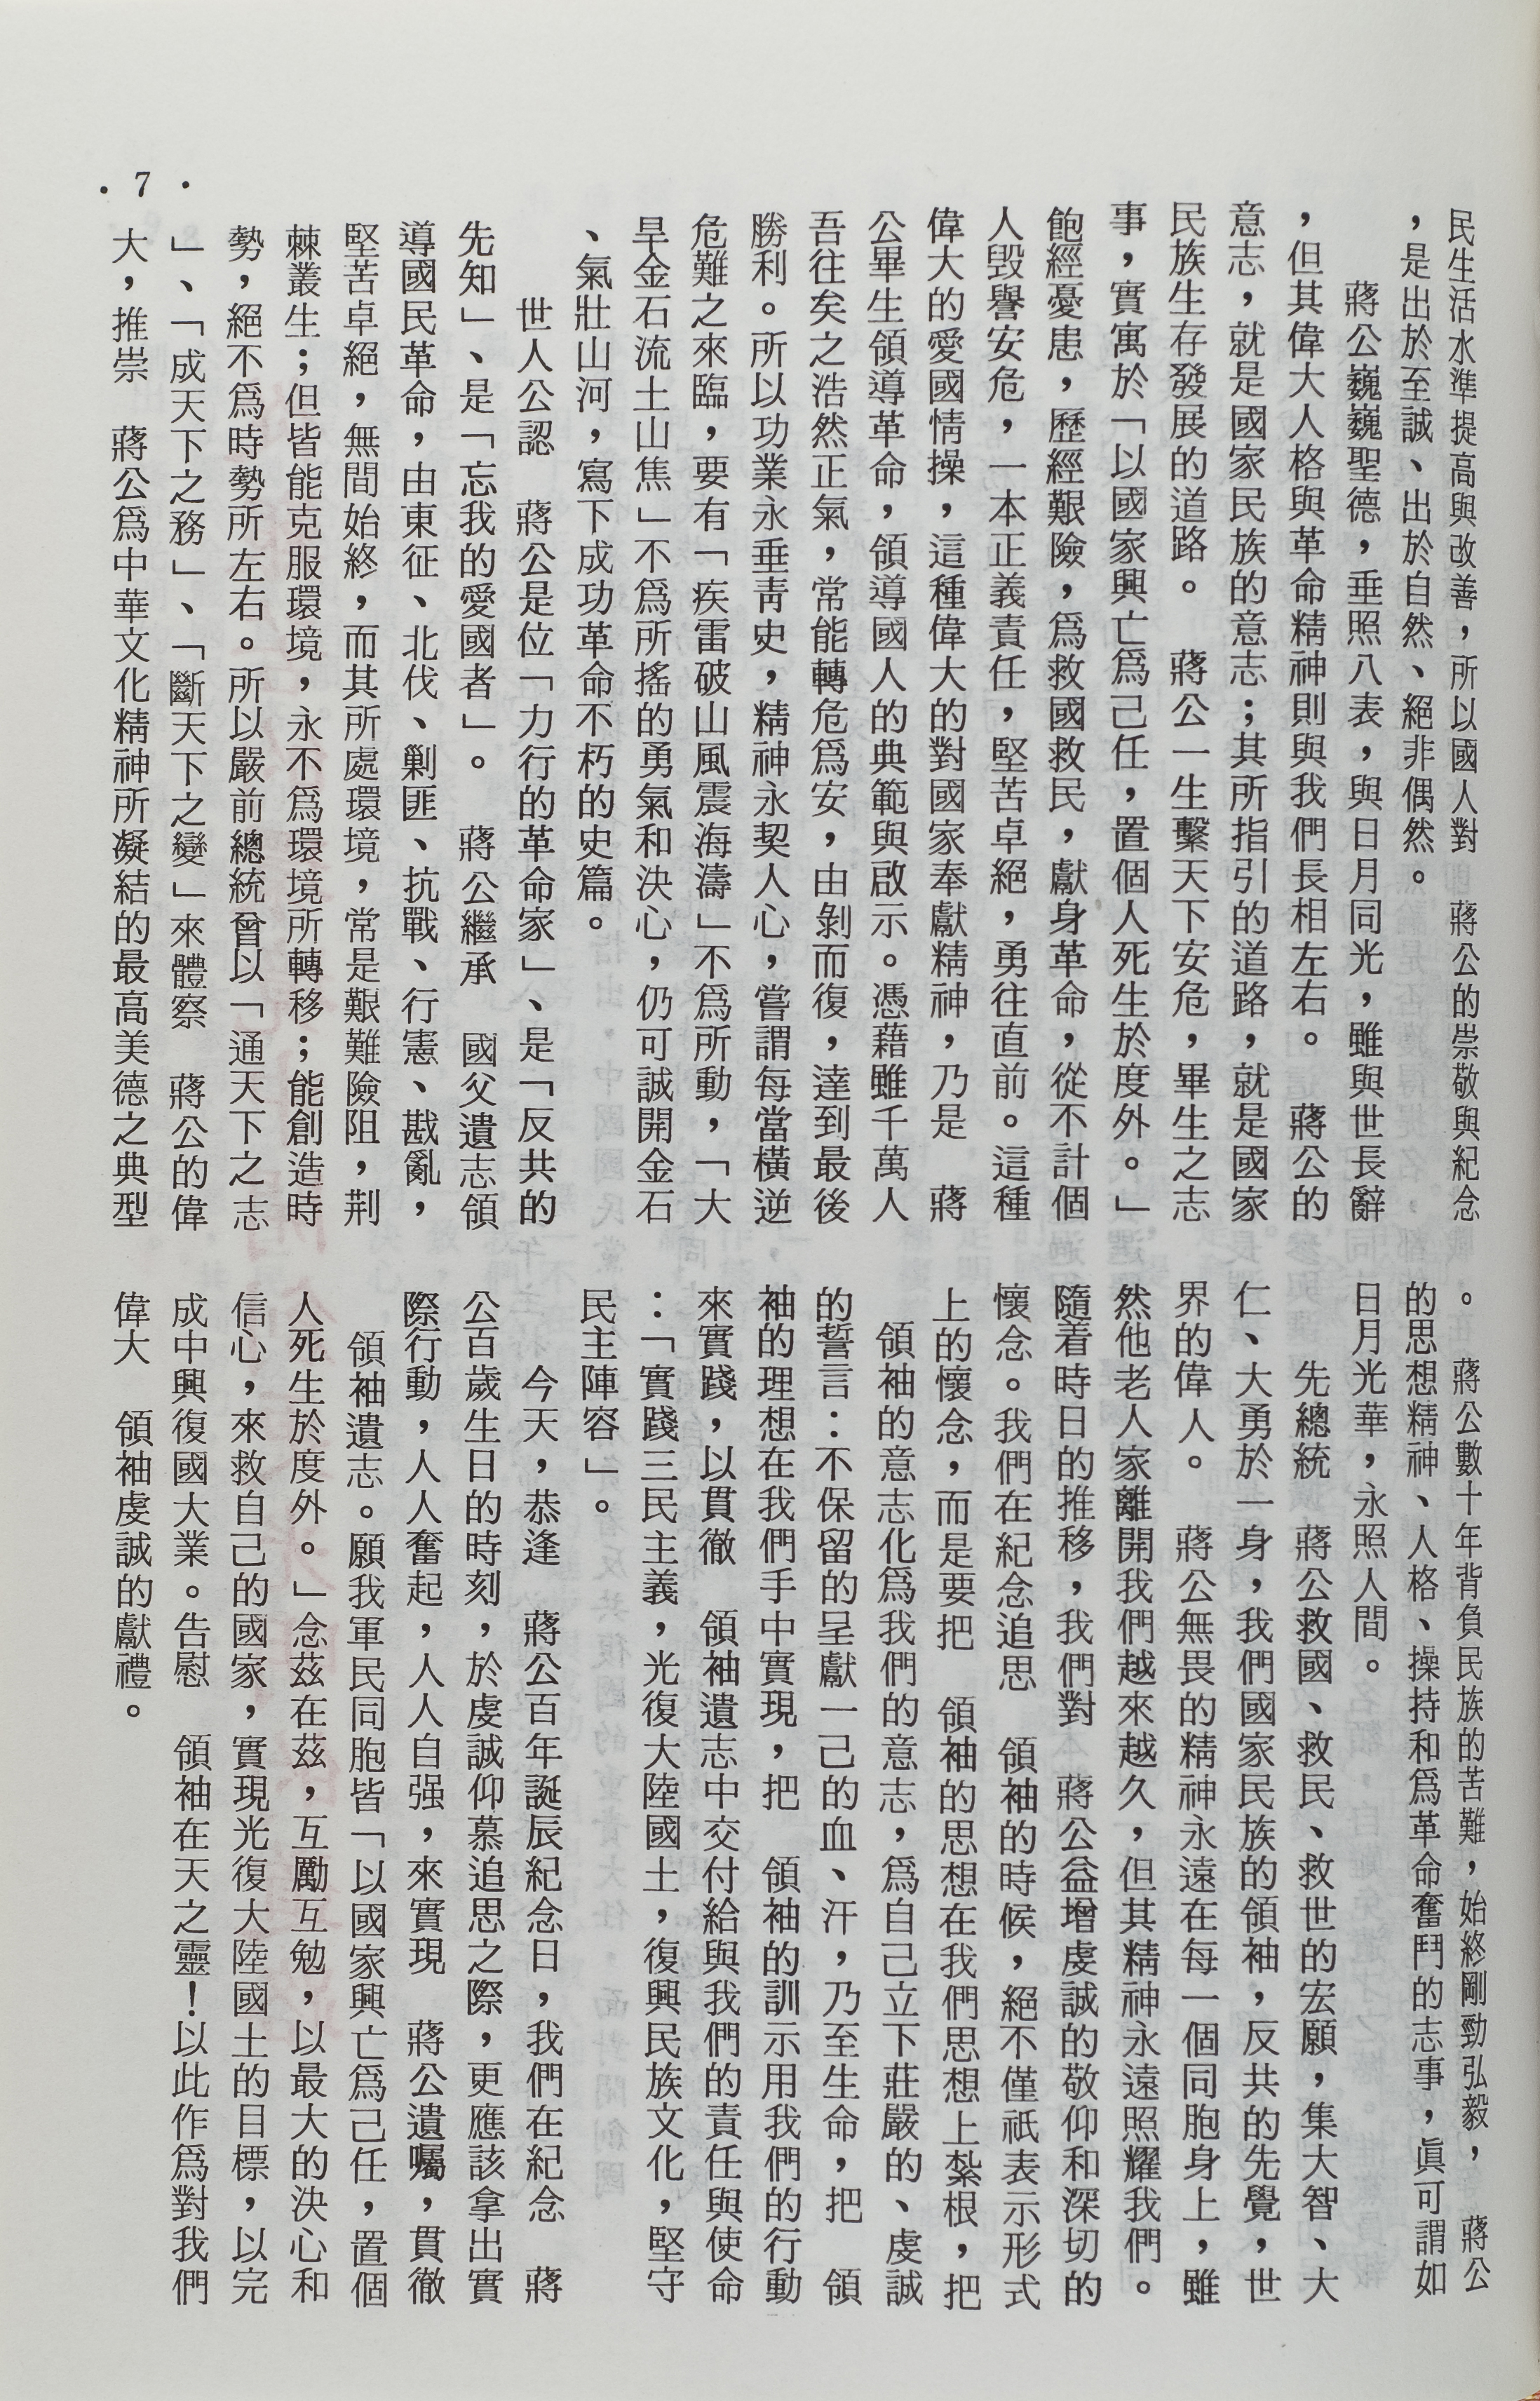 民生活水準提高與改善，所以國人對　蔣公的崇敬與紀念
，是出於至誠、出於自然、絕非偶然。
蔣公巍巍聖德，垂照八表，與日月同光，雖與世長辭
，但其偉大人格與革命精神則與我們長相左右。　蔣公的
意志，就是國家民族的意志；其所指引的道路，就是國家
民族生存發展的道路。　蔣公一生繫天下安危，畢生之志
事，實寓於「以國家興亡爲己任，置個人死生於度外。」
飽經憂患，歷經艱險，爲救國救民，獻身革命，從不計個
人毀譽安危，一本正義責任，堅苦卓絕，勇往直前。這種
偉大的愛國情操，這種偉大的對國家奉獻精神，乃是　蔣
公畢生領導革命，領導國人的典範與啟示。憑藉雖千萬人
吾往矣之浩然正氣，常能轉危爲安，由剝而復，達到最後
勝利。所以功業永垂靑史，精神永契人心，嘗謂每當橫逆
危難之來臨，要有「疾雷破山風震海濤」不爲所動，「大
旱金石流土山焦」不爲所搖的勇氣和決心，仍可誠開金石
、氣壯山河，寫下成功革命不朽的史篇。
世人公認　蔣公是位「力行的革命家」、是「反共的
先知」、是「忘我的愛國者」。　蔣公繼承　國父遺志領
導國民革命，由東征、北伐、剿匪、抗戰、行憲、戡亂，
堅苦卓絕，無間始終，而其所處環境，常是艱難險阻，荆
棘叢生；但皆能克服環境，永不爲環境所轉移；能創造時
勢，絕不爲時勢所左右。所以嚴前總統曾以「通天下之志
」、「成天下之務」、「斷天下之變」來體察　蔣公的偉
大，推崇　蔣公爲中華文化精神所凝結的最高美德之典型
。　蔣公數十年背負民族的苦難，始終剛勁弘毅，　蔣公
的思想精神、人格、操持和爲革命奮鬥的志事，眞可謂如
日月光華，永照人間。
先總統　蔣公救國、救民、救世的宏願，集大智、大
仁、大勇於一身，我們國家民族的領袖，反共的先覺，世
界的偉人。　蔣公無畏的精神永遠在每一個同胞身上，雖
然他老人家離開我們越來越久，但其精神永遠照耀我們。
隨着時日的推移，我們對　蔣公益增虔誠的敬仰和深切的
懷念。我們在紀念追思　領袖的時候，絕不僅祇表示形式
上的懷念，而是要把　領袖的思想在我們思想上紮根，把
領袖的意志化爲我們的意志，爲自己立下莊嚴的、虔誠
的誓言：不保留的呈獻一己的血、汗，乃至生命，把　領
袖的理想在我們手中實現，把　領袖的訓示用我們的行動
來實踐，以貫徹　領袖遺志中交付給與我們的責任與使命
：「實踐三民主義，光復大陸國土，復興民族文化，堅守
民主陣容」。
今天，恭逢　蔣公百年誕辰紀念日，我們在紀念　蔣
公百歲生日的時刻，於虔誠仰慕追思之際，更應該拿出實
際行動，人人奮起，人人自强，來實現　蔣公遺囑，貫徹
領袖遺志。願我軍民同胞皆「以國家興亡爲己任，置個
人死生於度外。」念茲在茲，互勵互勉，以最大的決心和
信心，來救自己的國家，實現光復大陸國土的目標，以完
成中興復國大業。告慰　領袖在天之靈！以此作爲對我們
偉大　領袖虔誠的獻禮。
·7·